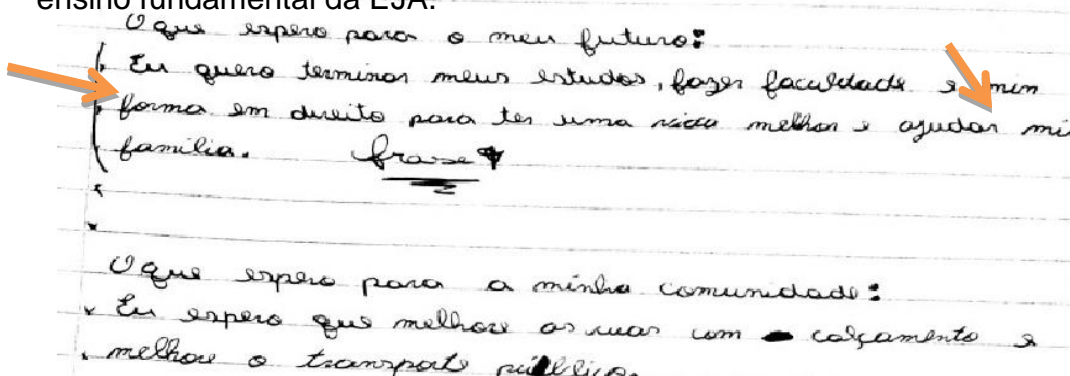 ensino fundamental da EJA.
O que espero para o meu futuro:
Eu quero terminar meus estudos, fazer faculdade e min
forma em direito para ter uma vida melhor e ajudar mi
família. frase
O que espero para a minha comunidade:
Eu espero que melhore as ruas com calçamento e
melhore o transpate público.